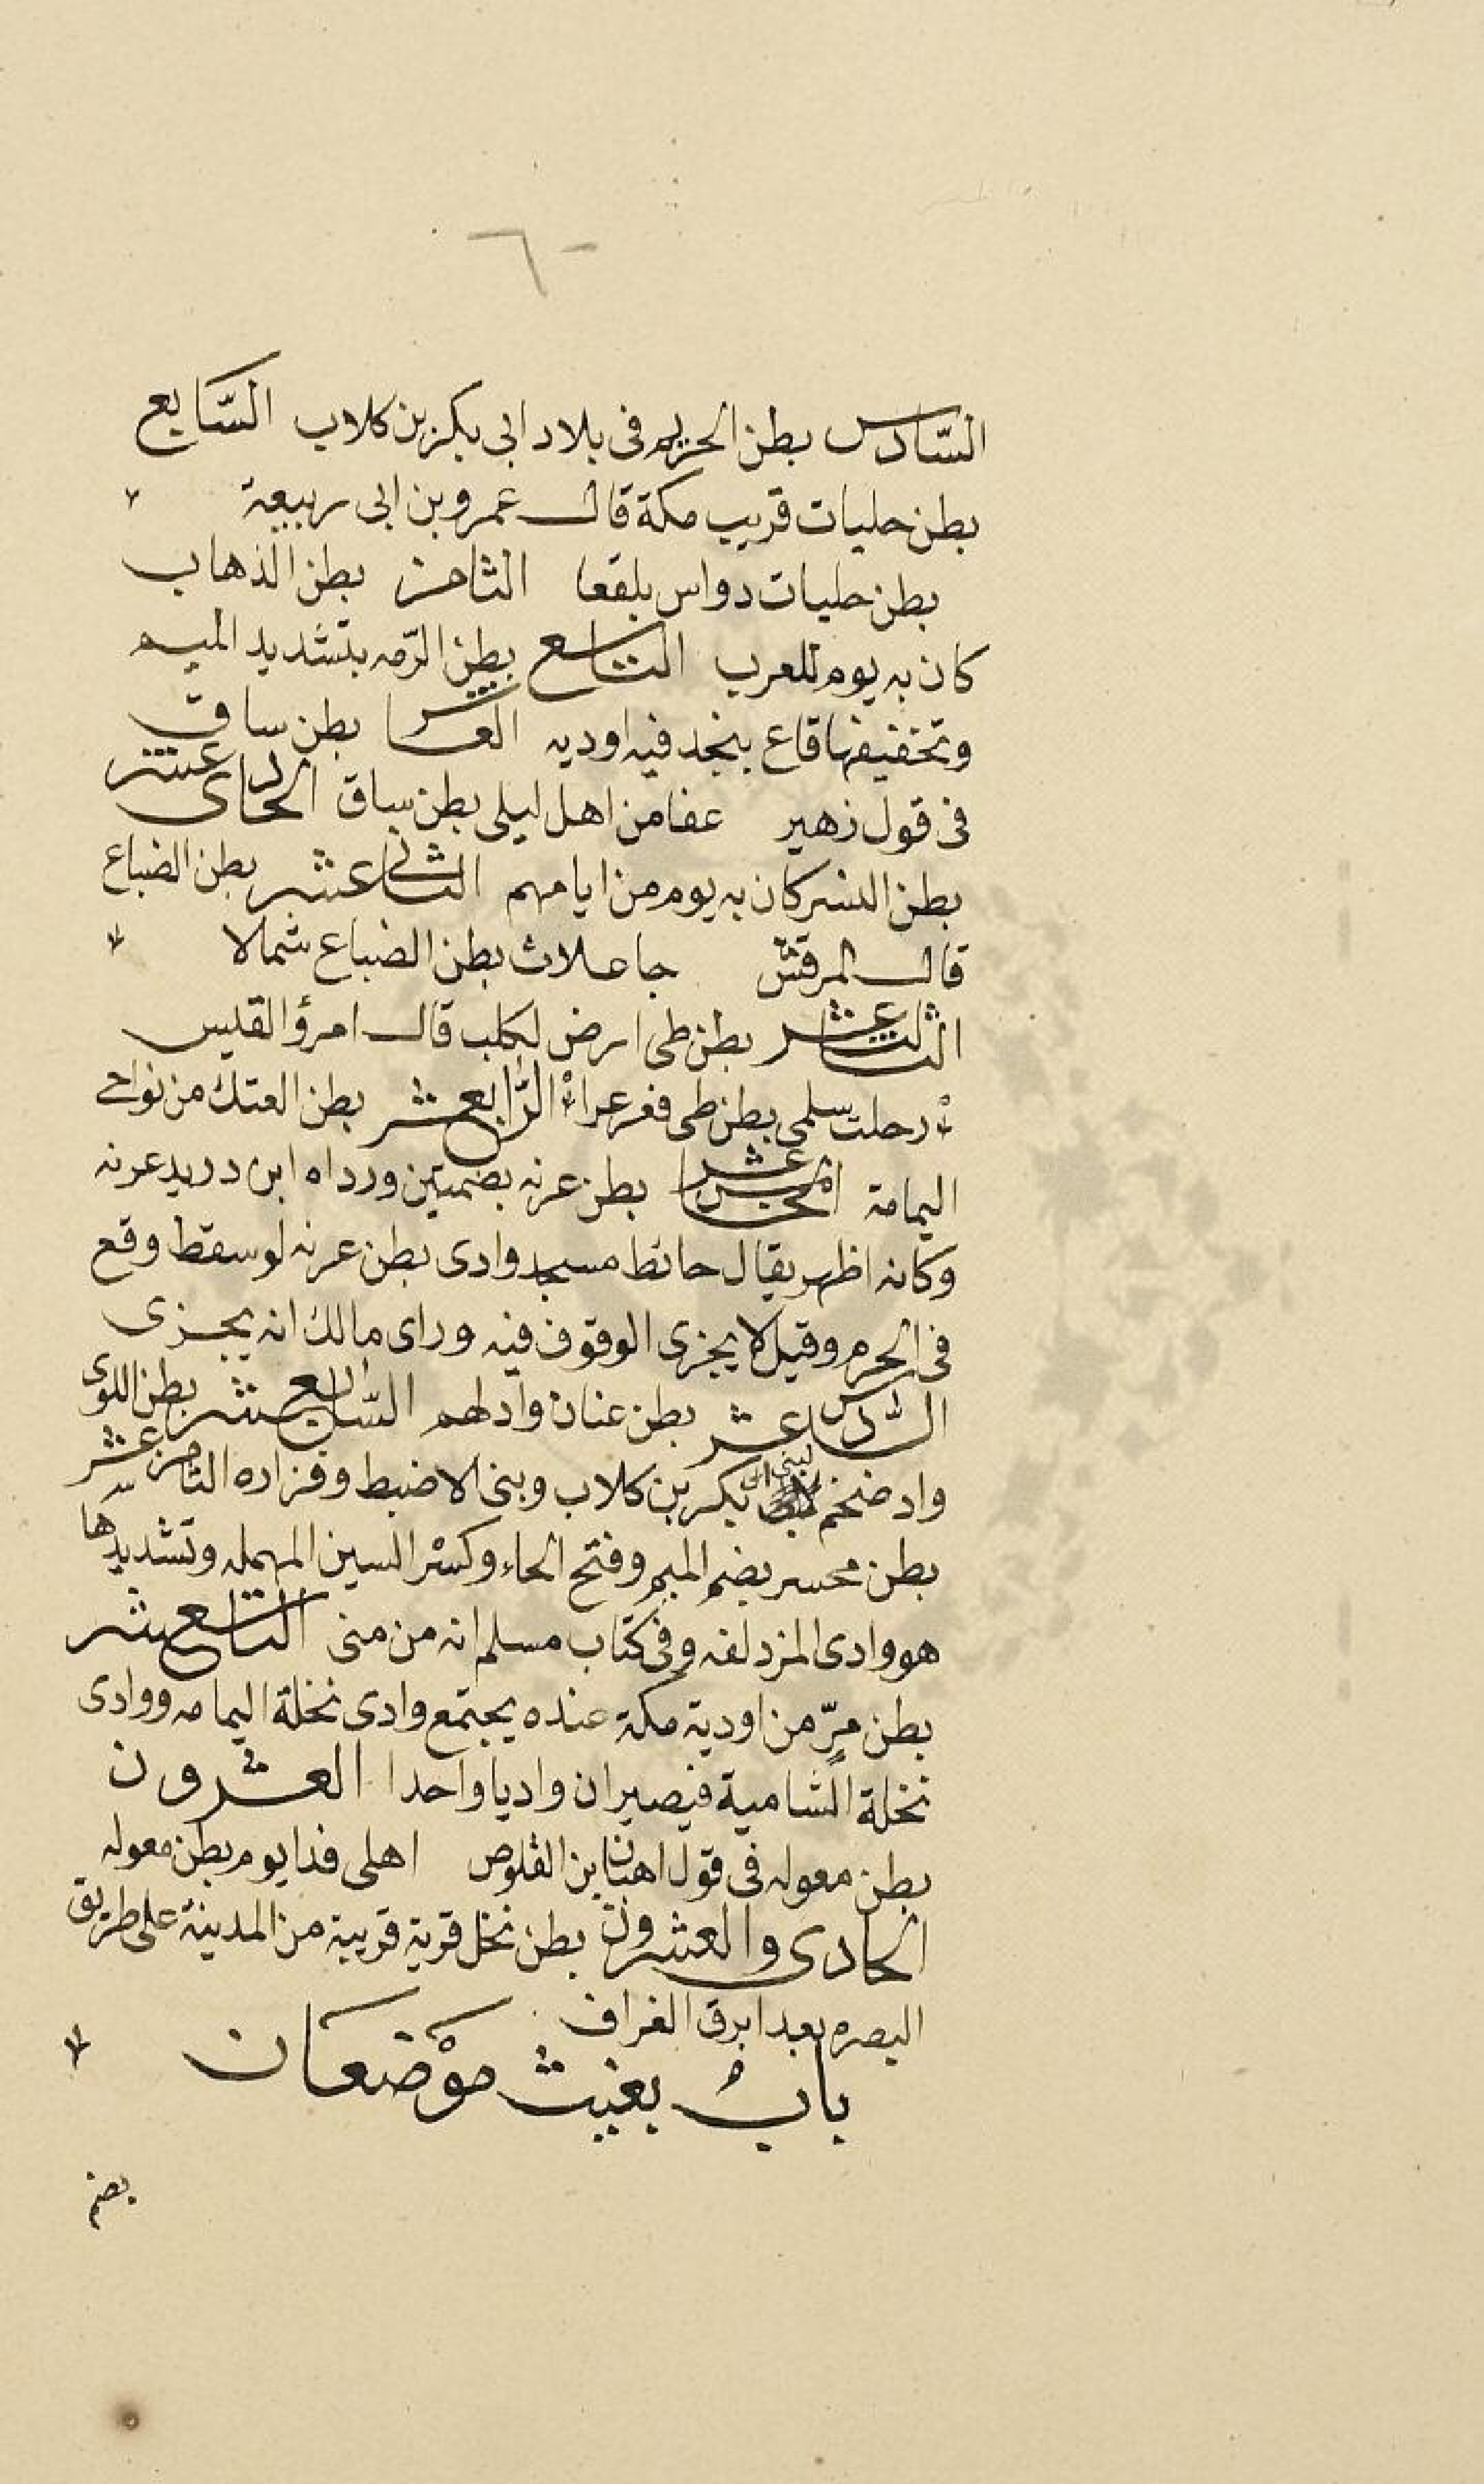 ٦٠
السّادس بطن الحريم فى بلاد ابى بكر بن كلاب السّابع
بطن حليات قريب مكة قال عمرو بن ابى ربيعة
بطن حليات دوارس بلقعا الثامن بطن الذهاب
كان به يوم للعرب التاسع بطن الرّمه بتشديد الميم
وتخفيفها قاع بنجد فيه اوديه العاشر بطن ساق
فى قول زهير عفا من اهل ليلى بطن ساق الحادى عشر
بطن السركان به يوم من ايامهم الثانى عشر بطن الضباع
قال المرقش جاعلات بطن الضباع شمالا
الثالث عشر بطن ظى ارض لكلب قال امرؤ القيس
رحلت سلمى بطن ظى فعرعرا الرّابع عشر بطن العتك من نواحى
اليمامة الخامس عشر بطن عرنه بضمتين ورداه ابن دريد عرنه
وكانه اظهر يقال حائط مسجد وادى بطن عرنه لو سقط وقع
فى الحرم وقيل لا يجزى الوقوف فيه وراى مالك انه يجزى
السّادس عشر بطن عنان وادلهم السّابع عشر بطن اللوى
واد ضخم لبنى ابى بكر بن كلاب وبنى الاضبط وفزاره الثامن عشر
بطن محسر بضم الميم وفتح الحاء وكسر السين المهمله وتشديدها
هو وادى المزدلفه وفى كتاب مسلم انه من منى التاسع عشر
بطن مرّ من اودية مكة عنده يجتمع وادى نخلة اليمامه ووادى
نخلة الشامية فيصيران واديا واحدا العشرون
بطن معوله فى قول اهبان بن القلوص اهلى فدا يوم بطن معوله
الحادى والعشرون بطن نخل قرية قريبة من المدينة على طريق
البصره بعد ابرق الغراف
باب بغيث موضعان
بضم